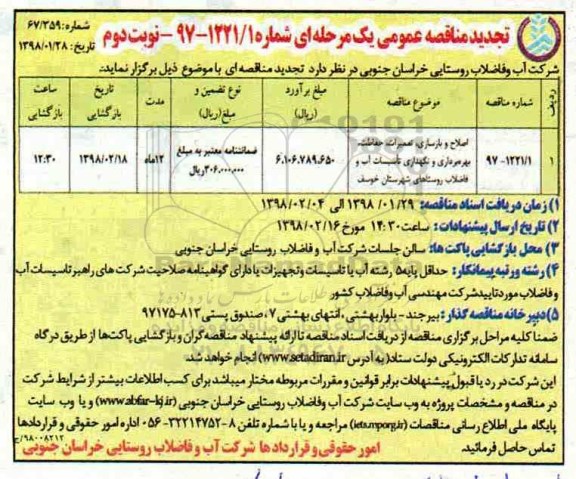 شماره: ۶۷/۳۵۹
تاریخ: ۱۳۹۸/۰۱/۲۸
تجدید مناقصه عمومی یک مرحله ای شماره ۱۲۲۱/۱-۹۷ - نوبت دوم
شرکت آب وفاضلاب روستایی خراسان جنوبی در نظر دارد تجدید مناقصه ای با موضوع ذیل برگزار نماید.
ردیف
شماره مناقصه
موضوع مناقصه
مبلغ برآورد (ریال)
نوع تضمین و مبلغ(ریال)
مدت
تاریخ بازگشایی
ساعت بازگشایی
۱
۹۷-۱۲۲۱/۱
اصلاح و بازسازی، تعمیرات، حفاظت، بهره‌برداری و نگهداری تاسیسات آب و فاضلاب روستاهای شهرستان خوسف
۶.۱۰۶.۷۸۹.۶۵۰
ضمانتنامه معتبر به مبلغ ۳۰۶.۰۰۰.۰۰۰ریال
۱۲ماه
۱۳۹۸/۰۲/۱۸
۱۲:۳۰
۱) زمان دریافت اسناد مناقصه: ۱۳۹۸/۰۱/۲۹ الی ۱۳۹۸/۰۲/۰۴
۲) تاریخ ارسال پیشنهادات: ساعت ۱۴:۳۰ مورخ ۱۳۹۸/۰۲/۱۶
۳) محل بازگشایی پاکت ها: سالن جلسات شرکت آب و فاضلاب روستایی خراسان جنوبی
۴) رشته ورتبه پیمانکار: حداقل پایه۵ رشته آب یا تاسیسات وتجهیزات یا دارای گواهینامه صلاحیت شرکت های راهبر تاسیسات آب
و فاضلاب مورد تایید شرکت مهندسی آب وفاضلاب کشور
۵) دبیرخانه مناقصه گذار: بیرجند - بلوار بهشتی، انتهای بهشتی ۷، صندوق پستی ۸۱۲-۹۷۱۷۵
ضمنا کلیه مراحل برگزاری مناقصه از دریافت اسناد مناقصه تا ارائه پیشنهاد مناقصه گران و بازگشایی پاکت‌ها از طریق درگاه
سامانه تدارکات الکترونیکی دولت ستاد (به آدرس www.setadiran.ir) انجام خواهد شد.
این شرکت در رد یا قبول پیشنهادات برابر قوانین و مقررات مربوطه مختار میباشد برای کسب اطلاعات بیشتر از شرایط شرکت
در مناقصه و مشخصات پروژه به وب سایت شرکت آب وفاضلاب روستایی خراسان جنوبی (www.abfar-kj.ir) و یا وب سایت
پایگاه ملی اطلاع رسانی مناقصات (iets.mporg.ir) مراجعه و یا با شماره تلفن ۸-۳۲۲۱۴۷۵۲-۰۵۶ اداره امور حقوقی و قراردادها
تماس حاصل فرمائید.
امور حقوقی و قراردادها شرکت آب و فاضلاب روستایی خراسان جنوبی
۹۸۰۰۸۲۱۲/ج